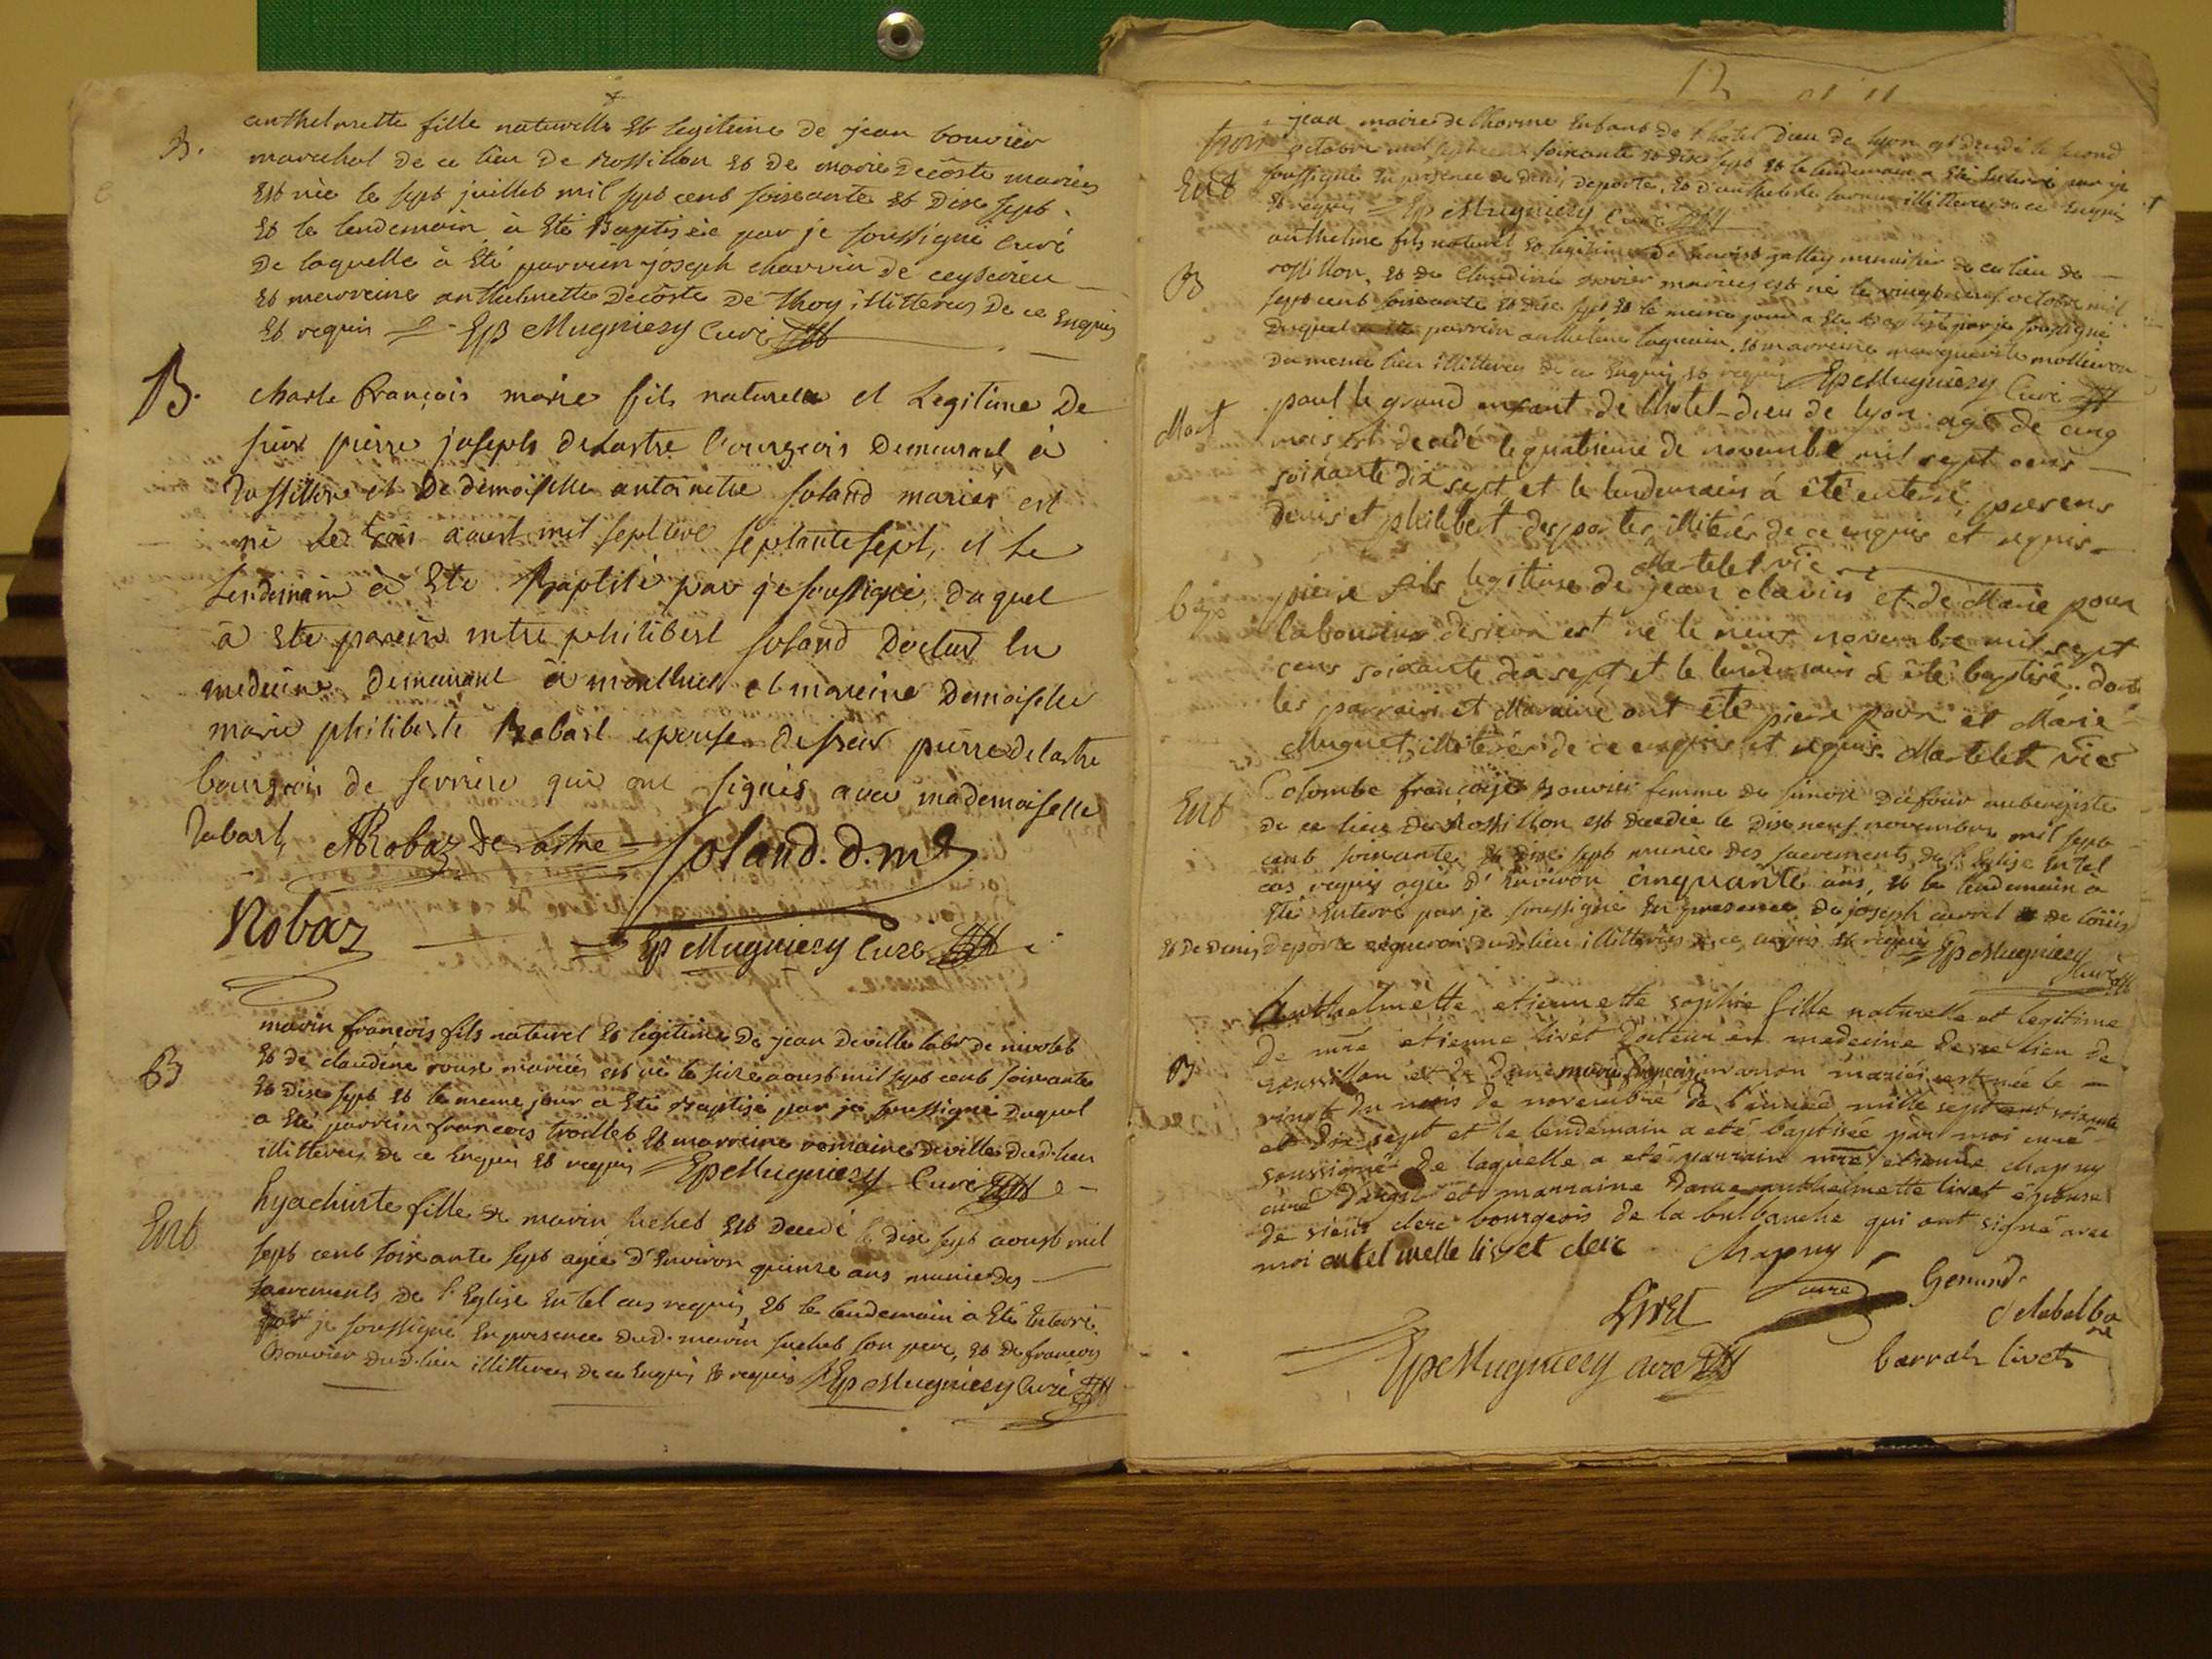 B.
anthelmette fille naturelle et legitime de jean bouvier
marechal de ce lieu de Rossillon et de marie decôste mariés
est née le sept juillet mil sept cent soixante et dix sept
et le lendemain à eté Baptisée par je soussigné curé
de laquelle à eté parrein joseph charvin de ceyserieu
et marreine anthelmette decôste de thoy illitteres de ce enquis
et requis EpMugniery Curé
B.
charle françois marie fils naturel et Legitime De
sieur pierre joseph delastre bourgeois Demeurant à
Rossillon et De demoiselle antoinette soland mariés est
né le trois aoust mil sept cent septante sept, et le
lendemain à Eté Baptisé par je soussigné, duquel
à Eté parrein mtre philibert soland Docteur en
medecine Demeurant à montluel et mareine Demoiselle
marie philiberte Robast epouse de sieur pierre delastre
bourgeois de serriere qui ont signés avec mademoiselle
Robast, Robaz De Lastre Soland. d. m
Robaz EpMugniery Curé
B
marin françois fils naturel et legitime de jean deville labr de nivolet
et de claudine roux mariés est né le seize aoust mil sept cent soixante
et dix sept et le meme jour a eté Baptisé par je soussigné duquel
a eté parrein françois trollet et marreine romaine deville dud. lieu
illitteres de ce enquis et requis EpMugniery Curé
Ent
hyachinte fille de marin suchet est decedé le dix sept aoust mil
sept cent soixante sept agée d'environ quinze ans munie des
sacrements de l'Eglise en tel cas requis, et le lendemain à eté enterré
par je soussigné en presence dud. marin suchet son pere, et de françois
Bouvier dud. lieu illitteres de ce enquis et requis EpMugniery Curé
12
Ent
jean marie de lhorme enfant de l'hotel dieu de lyon est decedé le second
octobre mil sept cent soixante et dix sept et le lendemain a eté enterré par je
soussigné en presence de denis deporte, et d'anthelme illitteres de ce enquis
et requis EpMugniery Curé
B
anthelme fils naturel et legitime de benoist gallay menuisier de ce lieu de
rossillon, et de Claudine mariés est né le vingt neuf octobre mil
sept cent soixante et dix sept et le meme jour a eté Baptisé par je soussigné
duquel parrein anthelme et marreine marguerite
du meme lieu illitteres de ce enquis et requis EpMugniery Curé
Mort
paul le grand enfant de l'hotel-dieu de lyon agé de cinq
mois est decedé le quatrieme de novembre mil sept cens
soixante dix sept, et le lendemain á été enterré, presens
denis et philibert desportes illiterés de ce enquis et requis
Martelet vic
pierre fils legitime de jean clavin et de Marie poux
laboureur est né le neuf novembre mil sept
cens soixante dix sept, et le lendemain á été baptisé. dont
les parrain et Maraine ont été pierre poux et Marie
Muguet illiterés de ce enquis et requis. Martelet vic
Ent
Colombe françoise Bouvier femme de simon dufour aubergiste
de ce lieu de Rossillon est decedée le dix neuf novembre mil sept
cent soixante et dix sept munie des sacrements de l'Eglise en tel
cas requis agée d'environ cinquante ans, et le lendemain a
eté enterré par je soussigné en presence de joseph curvel de
et de denis deporte vigneron dud. lieu illitteres de ce enquis et requis EpMugniery
Curé
B
Anthelmette etiennette sophie fille naturelle et legitime
de mre etienne livet docteur en medecine de ce lieu de
roussillon et de dame marie françoise mariés est née le
vingt du mois de novembre de l'année mille sept cent soixante
et dix sept et le lendemain a eté baptisée par moi curé
soussigné de laquelle a eté parrain mre etienne chapuy
curé et marraine dame anthelmette livet épouse
de sieur clerc bourgeois de la balbanche qui ont signé avec
moi antelmette livet clerc Chapuy
curé
Livet
delabalba
barral livet
EpMugniery Curé